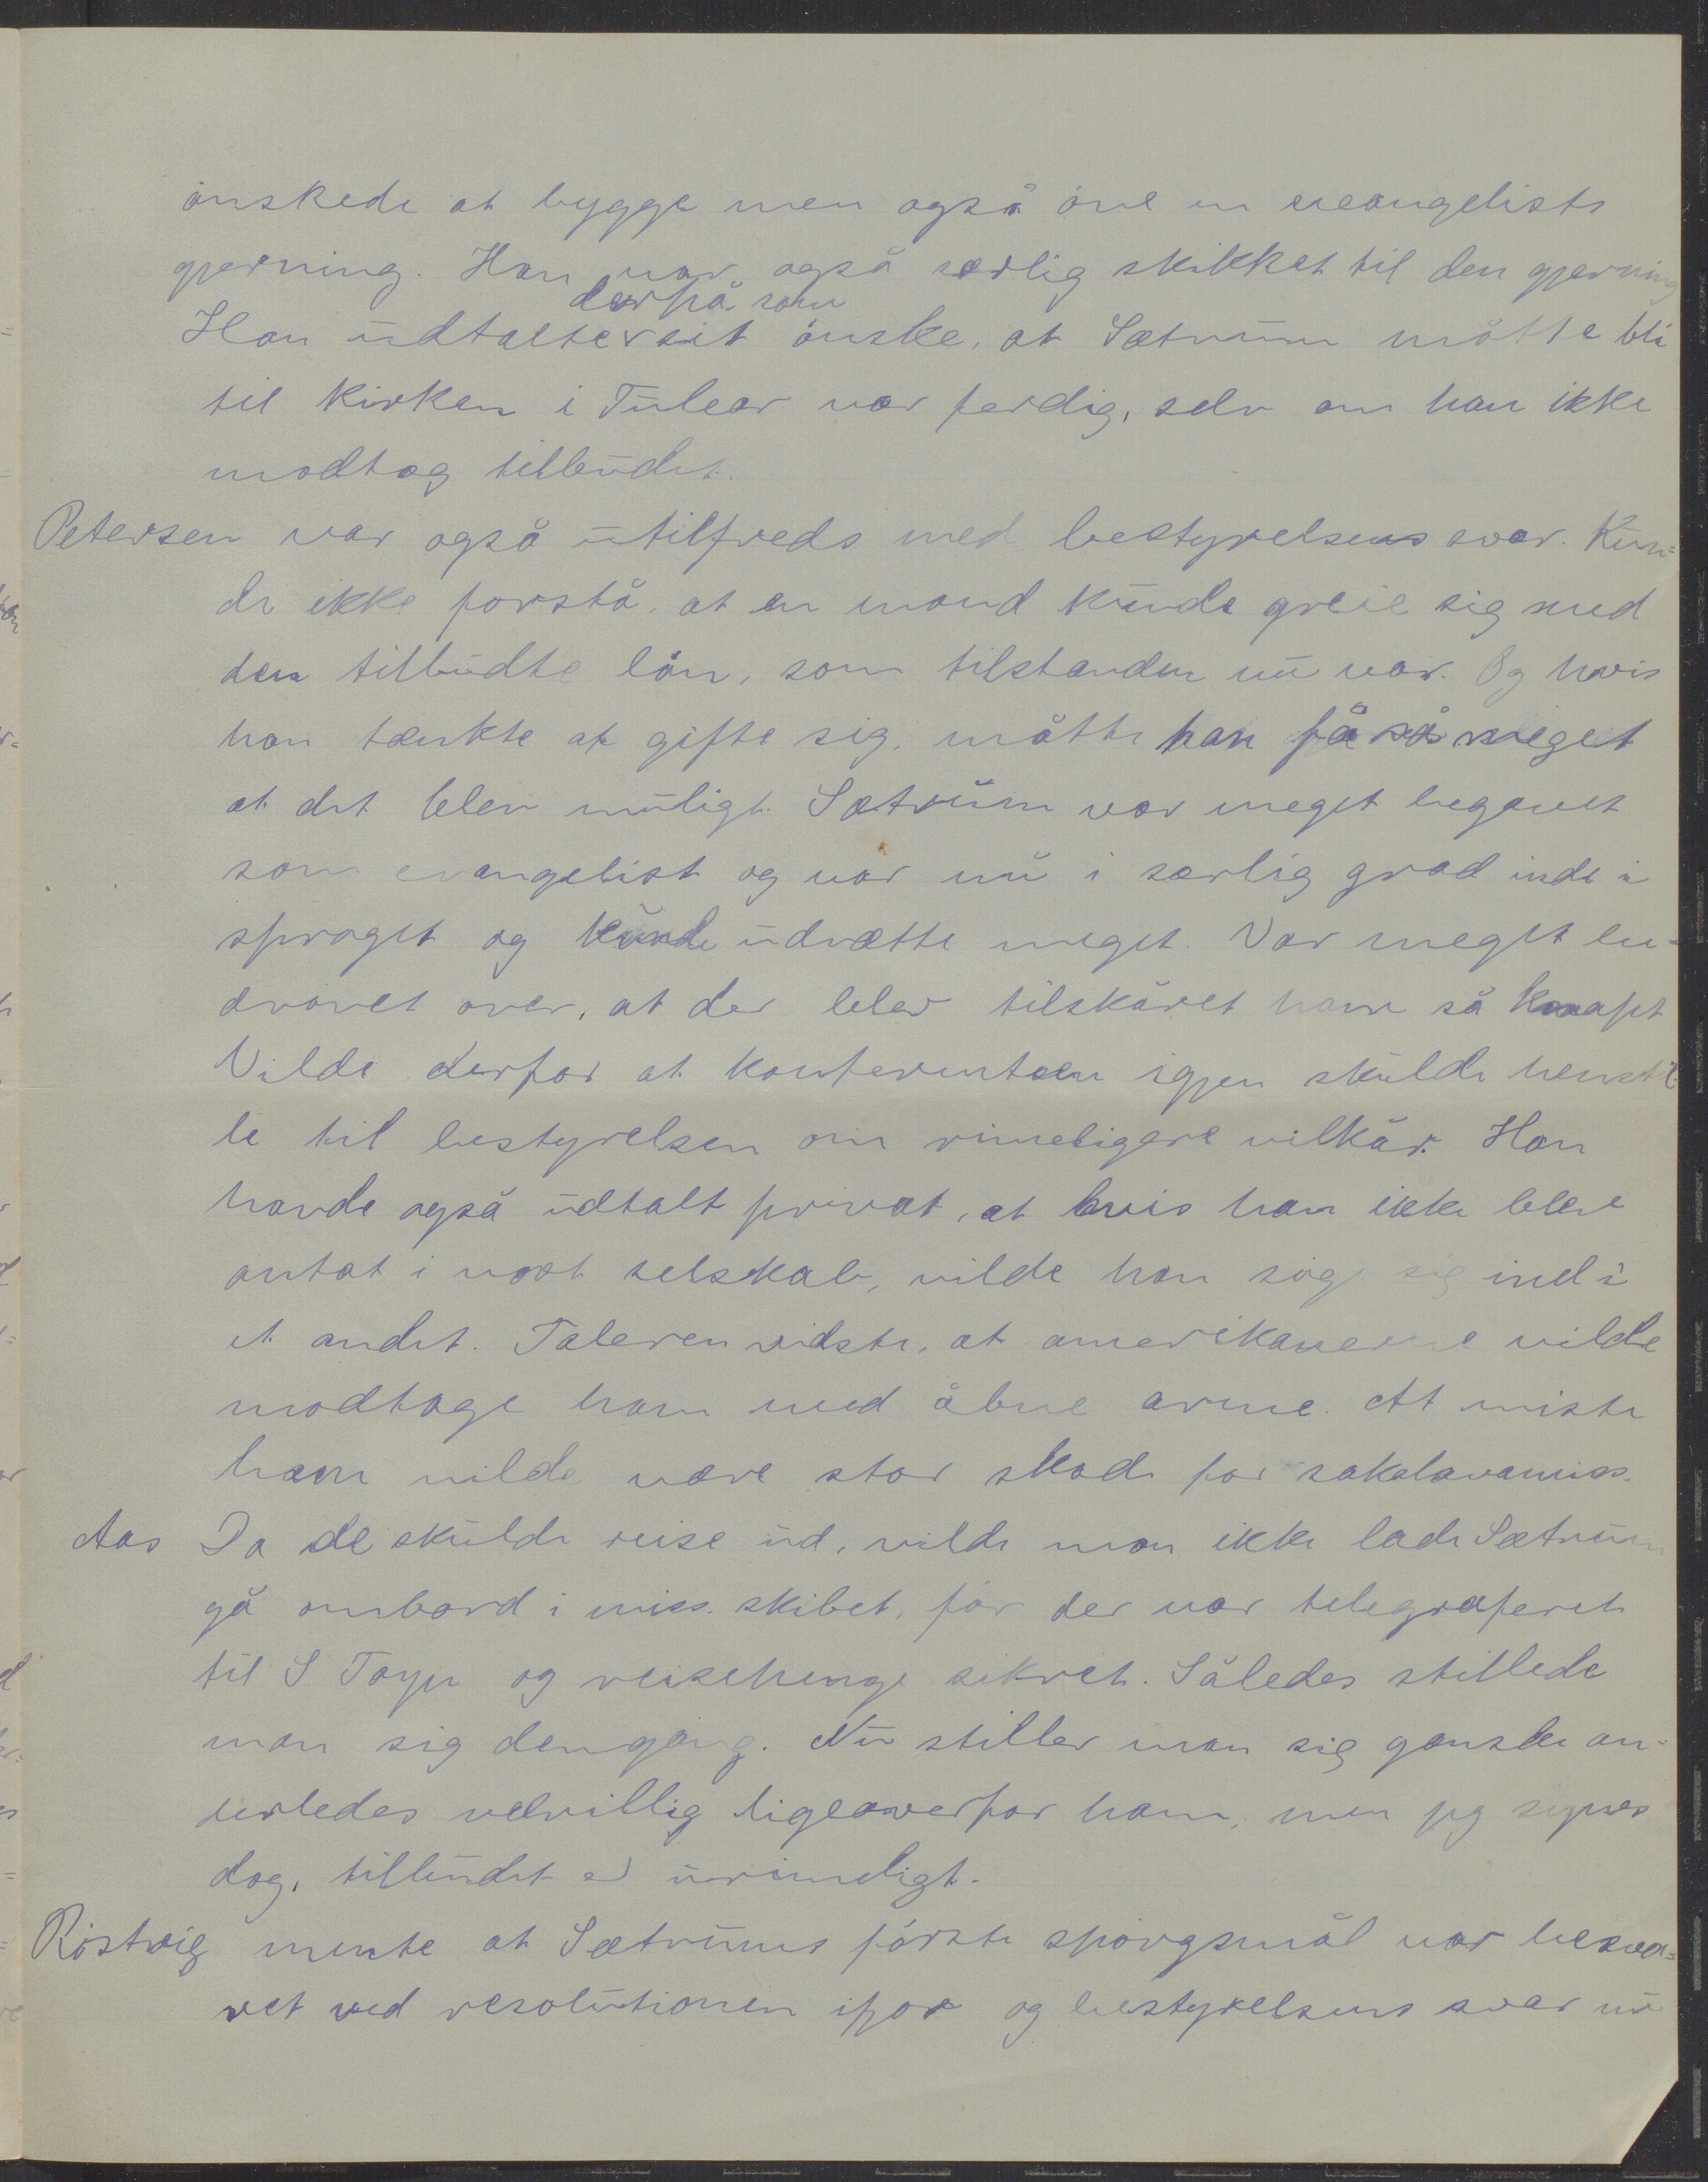 ønskede at bygge men også øve en evangelists
gjerning. Han var også særlig skikket til den gjerning
derpå som
Han udtalte sit ønske, at Sætrum måtte bli
til kirken i Tulear var færdig, selv om han ikke
modtog tilbudet.
Petersen var også utilfreds med bestyrelsens svar. Kun=
de ikke forstå, at en mand kunde greie sig med
den tilbudte løn, som tilstanden nu var. Og hvis
han tænkte at gifte sig, måtte han få så meget
at det blev muligt. Sætrum var meget begavet
som evangelist og var nu i særlig grad inde i
sproget og kunde udrætte meget. Var meget be-
drøvet over, at der blev tilskåret ham så knapt
Vilde derfor at konferentsen igjen skulde henstil
le til bestyrelsen om rimeligere vilkår. Han
havde også udtalt privat, at hvis han ikke blev
antat i vort selskab, vilde han søge sig ind i
et andet. Taleren vidste, at amerikanerne vilde
modtage ham med åbne arme. At miste
ham vilde være stor skade for sakalavamiss.
Aas Da de skulde reise ud, vilde man ikke lade Sætrum
gå ombord i miss. skibet, før der var telegraferet
til S. Tøyn og reisepenge sikret. Således stillede
man sig dengang. Nu stiller man sig ganske an-
derledes velvillig ligeoverfor ham, men jeg synes
dog, tilbudet er urimeligt.
Röstvig mente at Sætrums første spørgsmål var besva=
ret ved resolutionen ifjor og bestyrelsens svar nu